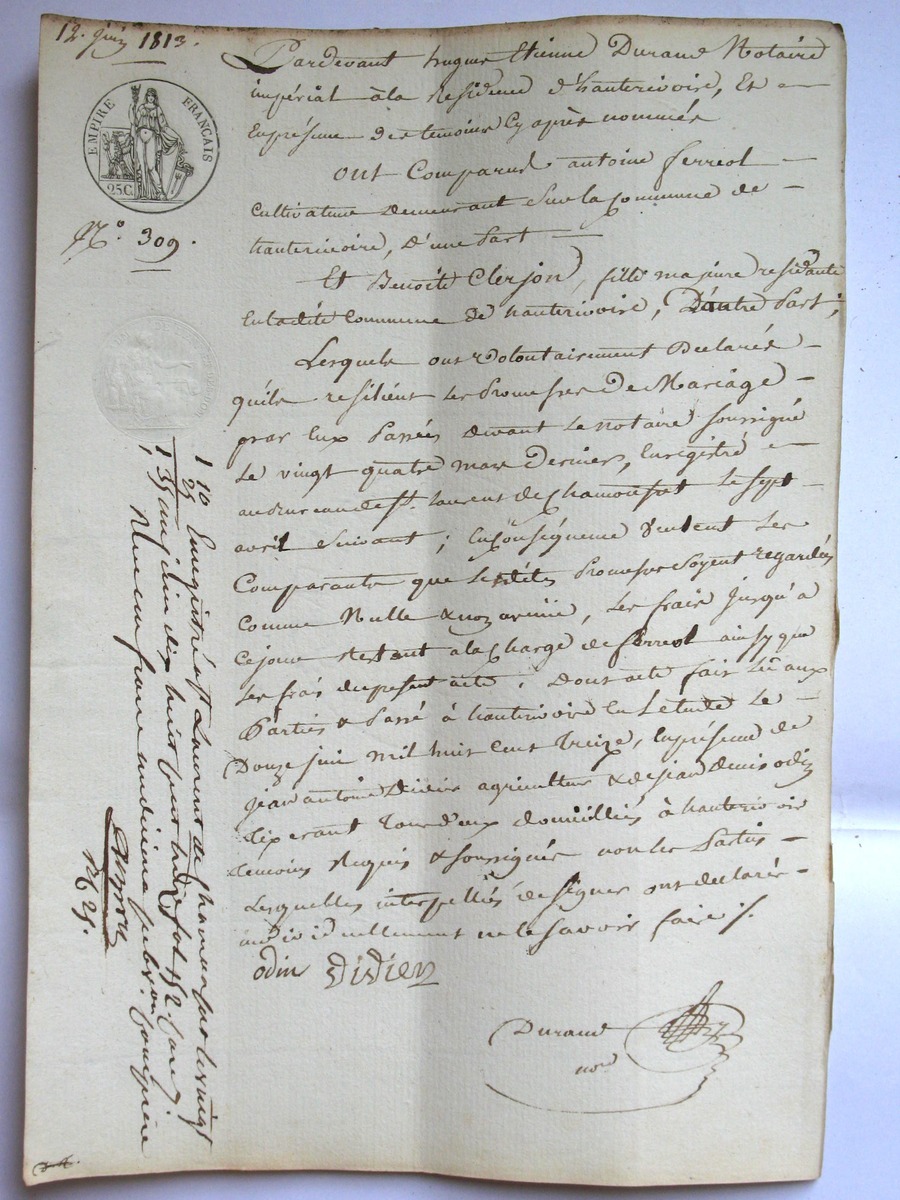 12. Juin 1813.
EMPIRE FRANÇAIS
25 C.
N.º 309.
Pardevant hugues Etienne Durand Notaire
impérial à la Residence d'hauterivoire, Et
En présence des temoins Cy après nommés
ont Comparus antoine ferreol
Cultivateur demeurant Sur la Commune de
hauterivoire, d'une Part
Et Benoite Clerjon, fille majeure residante
En la dite Commune de hauterivoire, D'autre Part;
Lesquels ont volontairement Declarés
quils resilient les Promesses De Mariage
par Eux Passées devant le notaire soussigné
le vingt quatre mars dernier, Enregistré
au Bureau de St. laurent de Chamousset le sept
avril Suivant; En Conséquence Veulent les
Comparants que lesdites Promesses Soyent regardées
Comme Nulle & non avenüe, les frais jusqu'à
Ce jour Restant à la Charge de ferreol ainsy que
les frais du present acte. Dont acte fait Lû aux
Parties & Passé à hauterivoire En L'etude le
Douze juin mil huit Cent Treize, En présence de
jean antoine Didier agriculteur & de jean denis odin
tixerant Tous d'eux domiciliés à hauterivoire
temoins Requis & soussignés non les Parties
Lesquelles interpellées de signer ont declarés
individuellement ne le savoir faire ./.
odin Didier
Durand
no.re
1 10 Enregistré à St Laurent de Chamousset le vingt
25
1 35 un juin dix huit cent treize fol 152 Case
Reçu un franc un dixieme
R. 25.